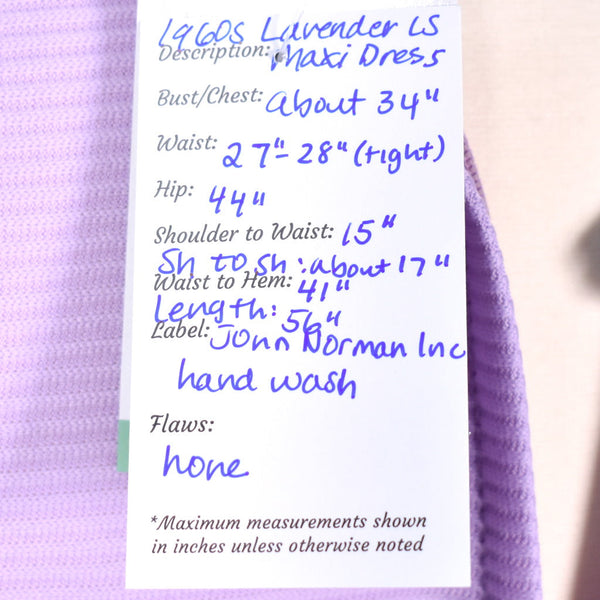 1960s Lavender LS
Description: Maxi Dress
Bust/Chest: about 34"
Waist: 27"-28" (tight)
Hip: 44"
Shoulder to Waist: 15"
Sh to sh: about 17"
Waist to Hem: 41"
Length: 56"
Label: John Norman Inc
hand wash
Flaws:
none
*Maximum measurements shown
in inches unless otherwise noted